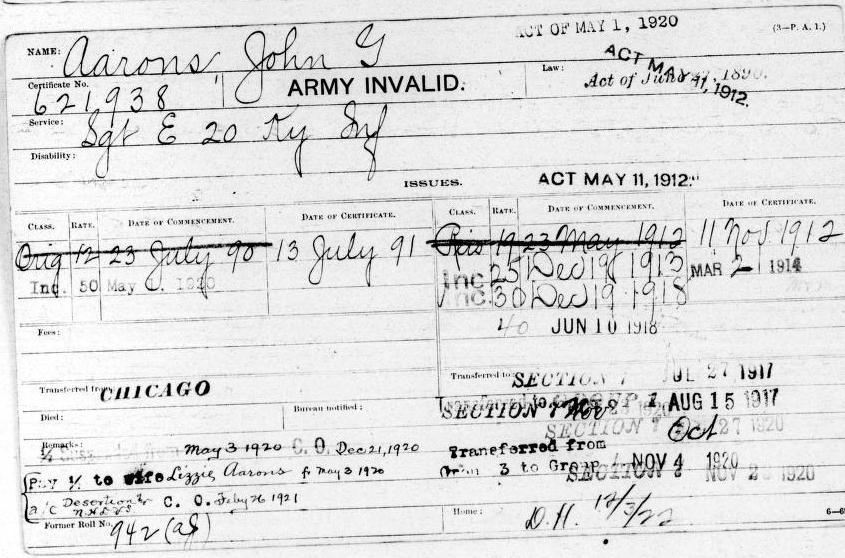 ACT OF MAY 1, 1920
(3—P. A. 1.)
NAME: Aarons, John G
ACT MAY 11, 1912.
Certificate No. 621,938
ARMY INVALID.
Law: Act of June 27, 1890.
Service: Sgt E 20 Ky Inf
Disability:
ISSUES.
ACT MAY 11, 1912."
CLASS. RATE. DATE OF COMMENCEMENT. DATE OF CERTIFICATE. CLASS. RATE. DATE OF COMMENCEMENT. DATE OF CERTIFICATE.
Orig 12 23 July 90 13 July 91 19 23 May 1912 11 Nov 1912
Inc. 50 May 1. 1920 Inc 25 Dec 19 1913 MAR 2 1914
Inc. 30 Dec 19 1918
40 JUN 10 1918
Fees:
Transferred from CHICAGO
Transferred to: SECTION 1 JUL 27 1917
Died:
Bureau notified:
SECTION 1 Nov AUG 15 1917
SECTION Oct 27 1920
Remarks:
1/2 from May 3 1920 C. O. Dec 21, 1920
Transferred from
Pay 1/2 to wife Lizzie Aarons f May 3 1920
3 to Group 1 NOV 4 1920
SECTION NOV 26 1920
a/c Desertion & C. O. Feby 26 1921
Former Roll No. 942
Home: D.H. 12/3/22
6—6